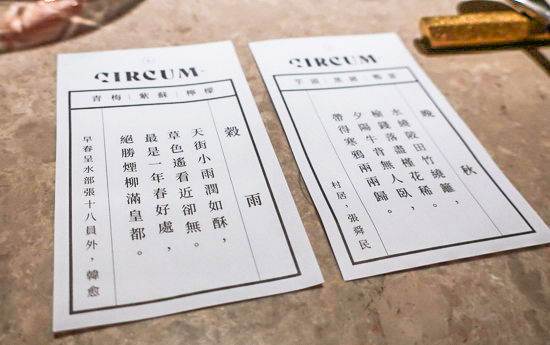 CIRCUM
青梅｜紫蘇｜檸檬
穀雨
天街小雨潤如酥，
草色遙看近卻無。
最是一年春好處，
絕勝煙柳滿皇都。
早春呈水部張十八員外，韓愈
CIRCUM
芋頭
晚秋
水繞陂田竹繞籬，
榆錢落盡槿花稀。
夕陽牛背無人臥，
帶得寒鴉兩兩歸。
村居，張舜民